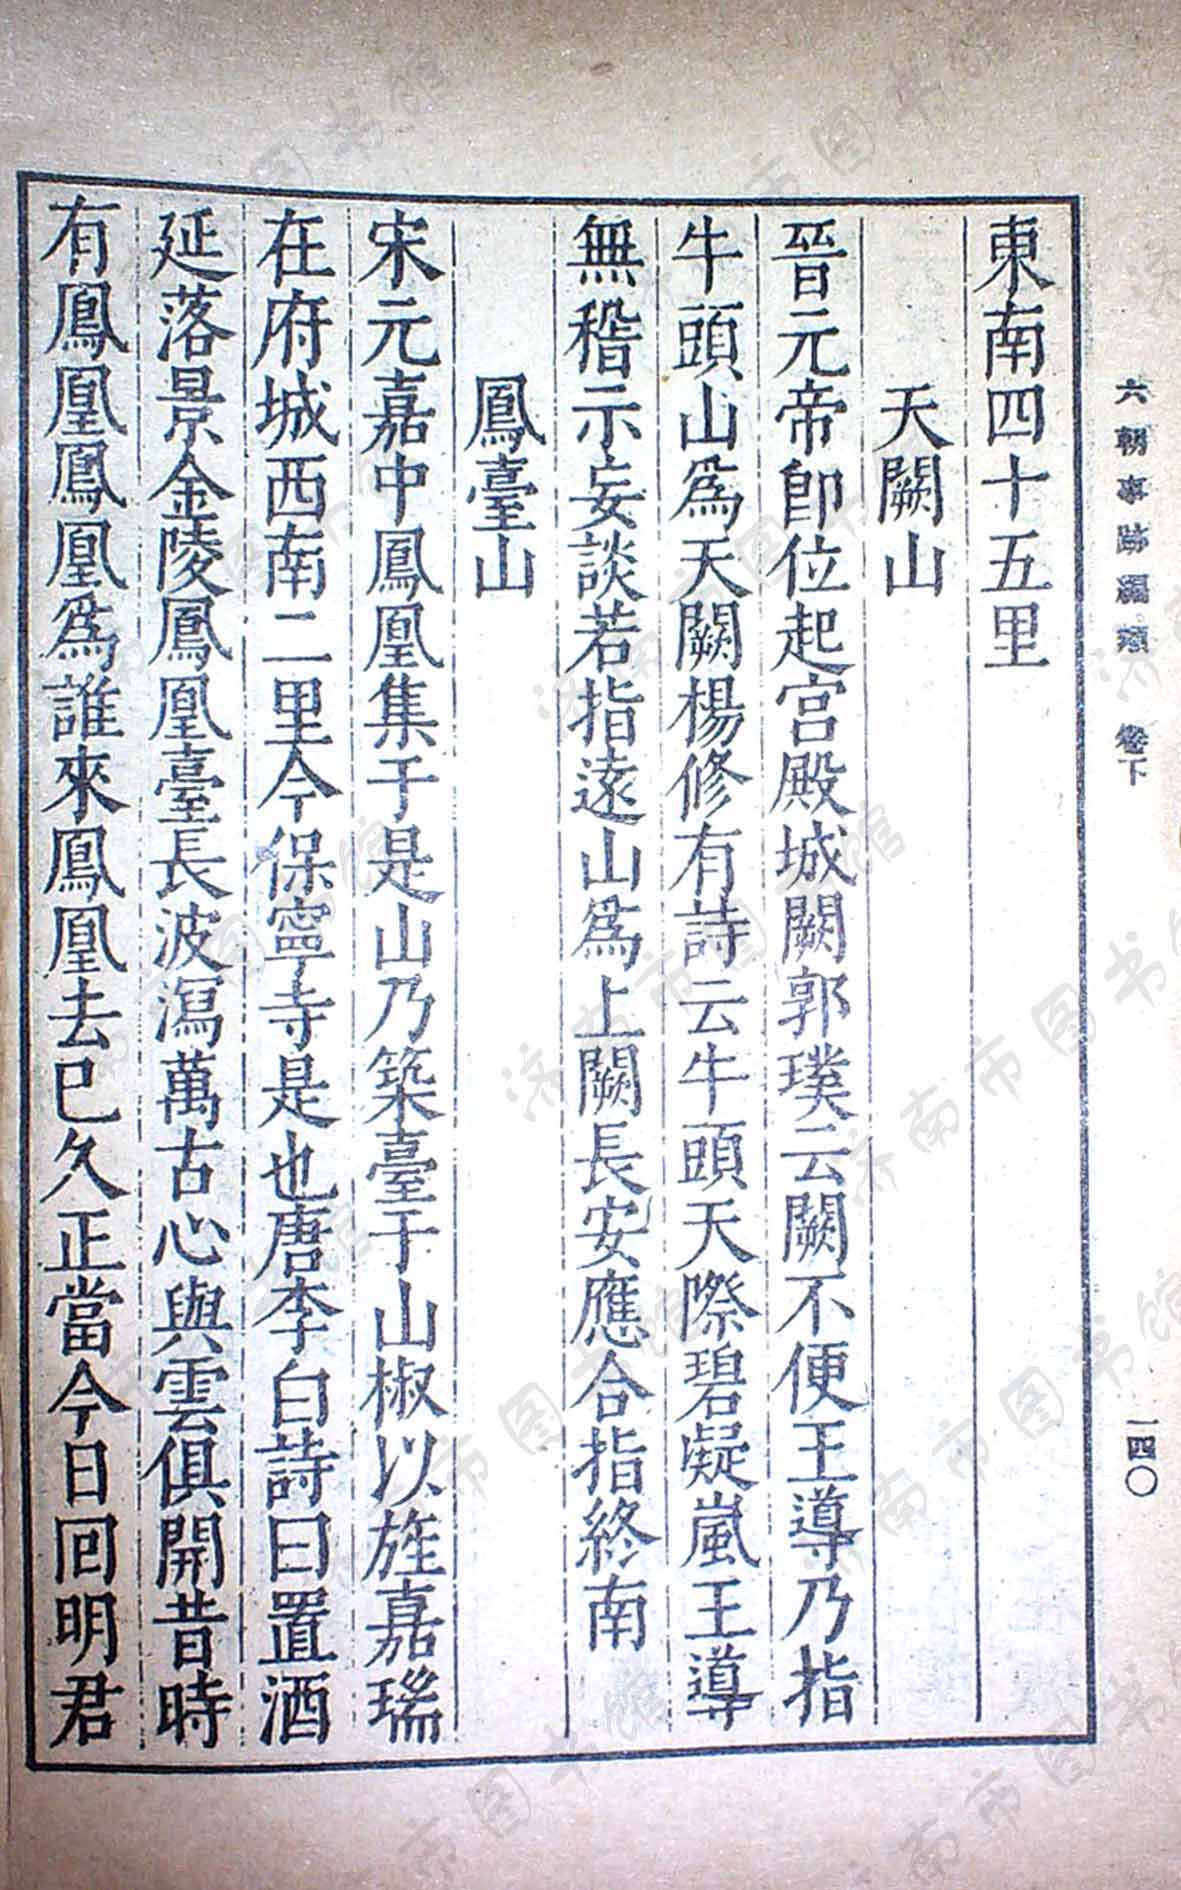 六朝事跡編類 卷下
一四〇
東南四十五里
天闕山
晉元帝即位起宮殿城闕郭璞云闕不便王導乃指
牛頭山爲天闕楊修有詩云牛頭天際碧凝嵐王導
無稽示妄談若指遠山爲上闕長安應合指終南
鳳臺山
宋元嘉中鳳凰集于是山乃築臺于山椒以旌嘉瑞
在府城西南二里今保寧寺是也唐李白詩曰置酒
延落景金陵鳳凰臺長波瀉萬古心與雲俱開昔時
有鳳凰鳳凰爲誰來鳳凰去已久正當今日回明君
济南市图书馆